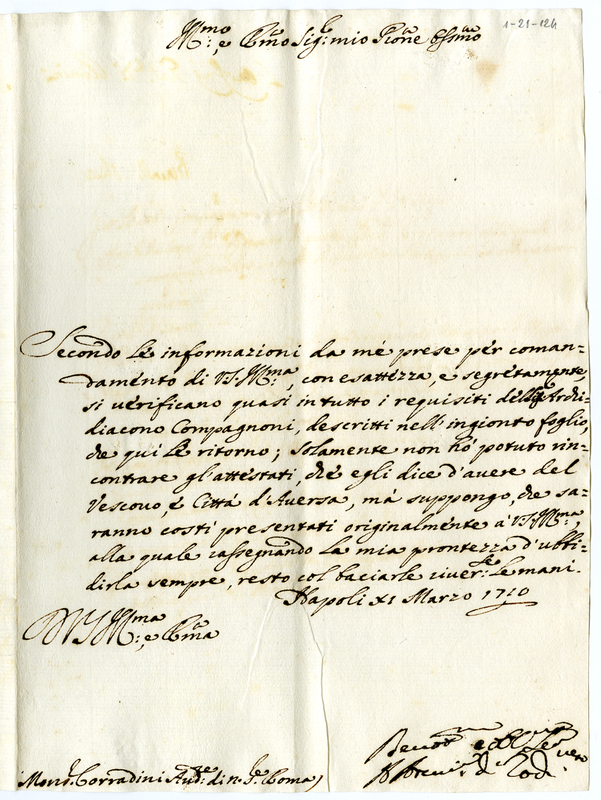 1-21-124
Ill.mo e R.mo Sig.r mio P.rone Oss.mo
Secondo le informazioni da mè prese per coman=
damento di V.S. Ill.ma, con esattezza, e segretamente,
si verificano quasi in tutto i requisiti dell' Archi=
diacono Compagnoni, descritti nell' ingionto foglio,
che quì Le ritorno; solamente non hò potuto rin=
contrare gl'attestati, che egli dice d'avere del
Vescovo, e Città d'Aversa, mà suppongo, che sa=
ranno costì presentati originalmente à V.S. Ill.ma,
alla quale rassegnando la mia prontezza d'ubbi=
dirla sempre, resto col baciarle river.te le mani.
Napoli XI Marzo 1710
D V.S. Ill.ma e R.ma
Mons.r Corradini Aud.re di N. S.re Roma